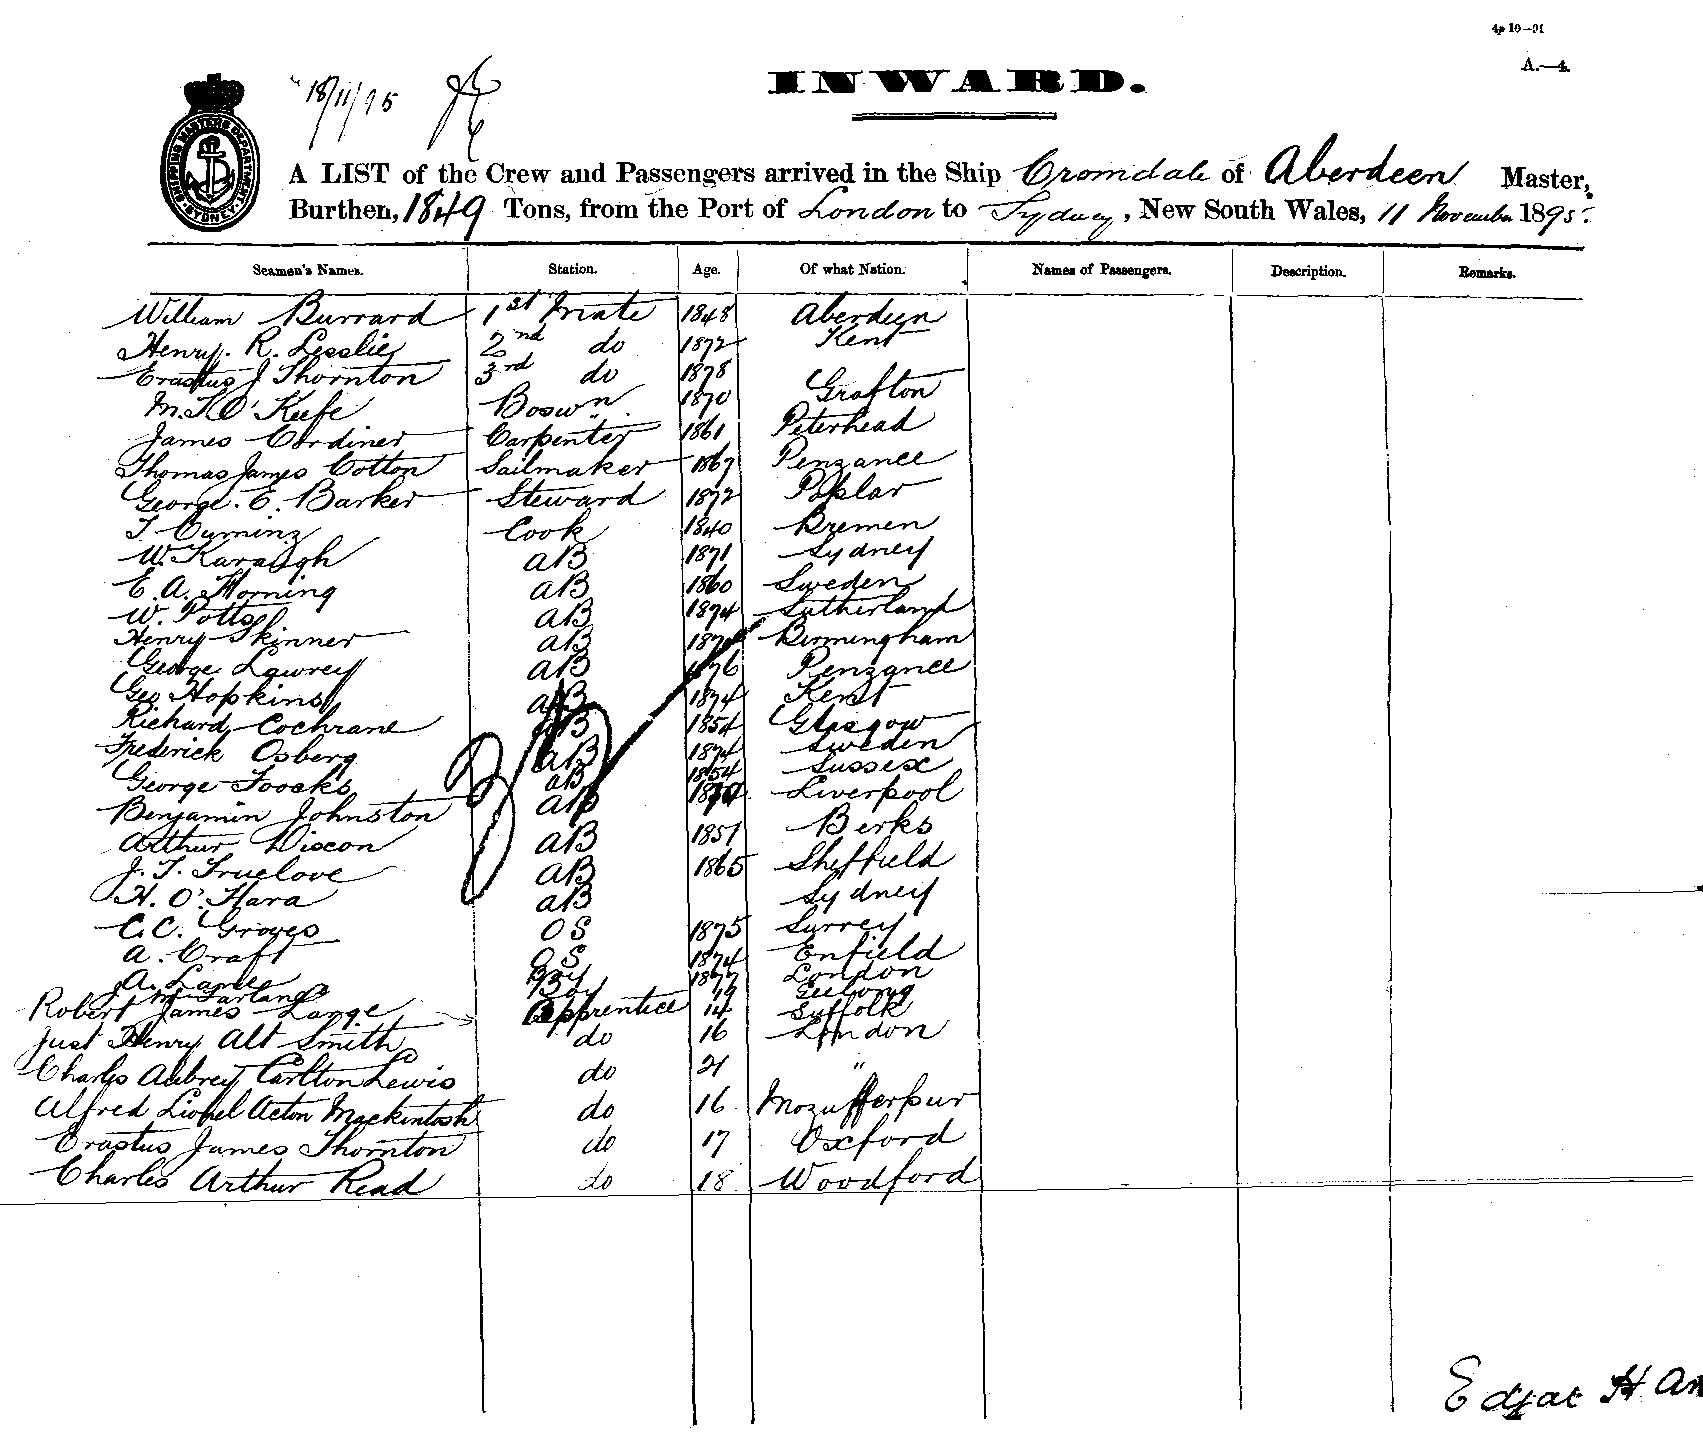 4p 10—91
A.—4.
18/11/95
INWARD.
SHIPPING MASTERS DEPARTMENT SYDNEY
A LIST of the Crew and Passengers arrived in the Ship Cromdale of Aberdeen Master,
Burthen, 1849 Tons, from the Port of London to Sydney, New South Wales, 11 November 1895.
Seamen's Names. Station. Age. Of what Nation. Names of Passengers. Description. Remarks.
William Burrard 1st Mate 1848 Aberdeen
Henry. R. Lesslie 2nd do 1872 Kent
Erastus J Thornton 3rd do 1878 Grafton
M. K O'Keefe Boswn 1870
James Cordiner Carpenter 1861 Peterhead
Thomas James Cotton Sailmaker 1867 Penzance
George. E. Barker Steward 1872 Poplar
Cook 1840 Bremen
W. Kavaugh aB 1871 Sydney
E. A. Horning aB 1860 Sweden
W. Potts aB 1874 Sutherland
Henry Skinner aB Birmingham
George Lawrey aB 1876 Penzance
Geo Hopkins aB 1874 Kent
Richard Cochrane aB 1854 Glasgow
Frederick Osberg aB 1874 Sweden
George Foooks aB 1854 Sussex
Benjamin Johnston aB Liverpool
Arthur Discon aB 1857 Berks
J. T. Truelove aB 1865 Sheffield
H. O'Hara aB Sydney
C. C. Groves OS 1875 Surrey
A. Craft OS 1874 Enfield
A. Lane Boy 1877 London
McFarlane Boy 19 Geelong
Robert James Lange Apprentice 14 Suffolk
Just Henry Alt Smith do 16 London
Charles Aubrey Carlton Lewis do 21 "
Alfred Lionel Acton Mackintosh do 16 Mozufferpur
Erastus James Thornton do 17 Oxford
Charles Arthur Read do 18 Woodford
Edgar H An